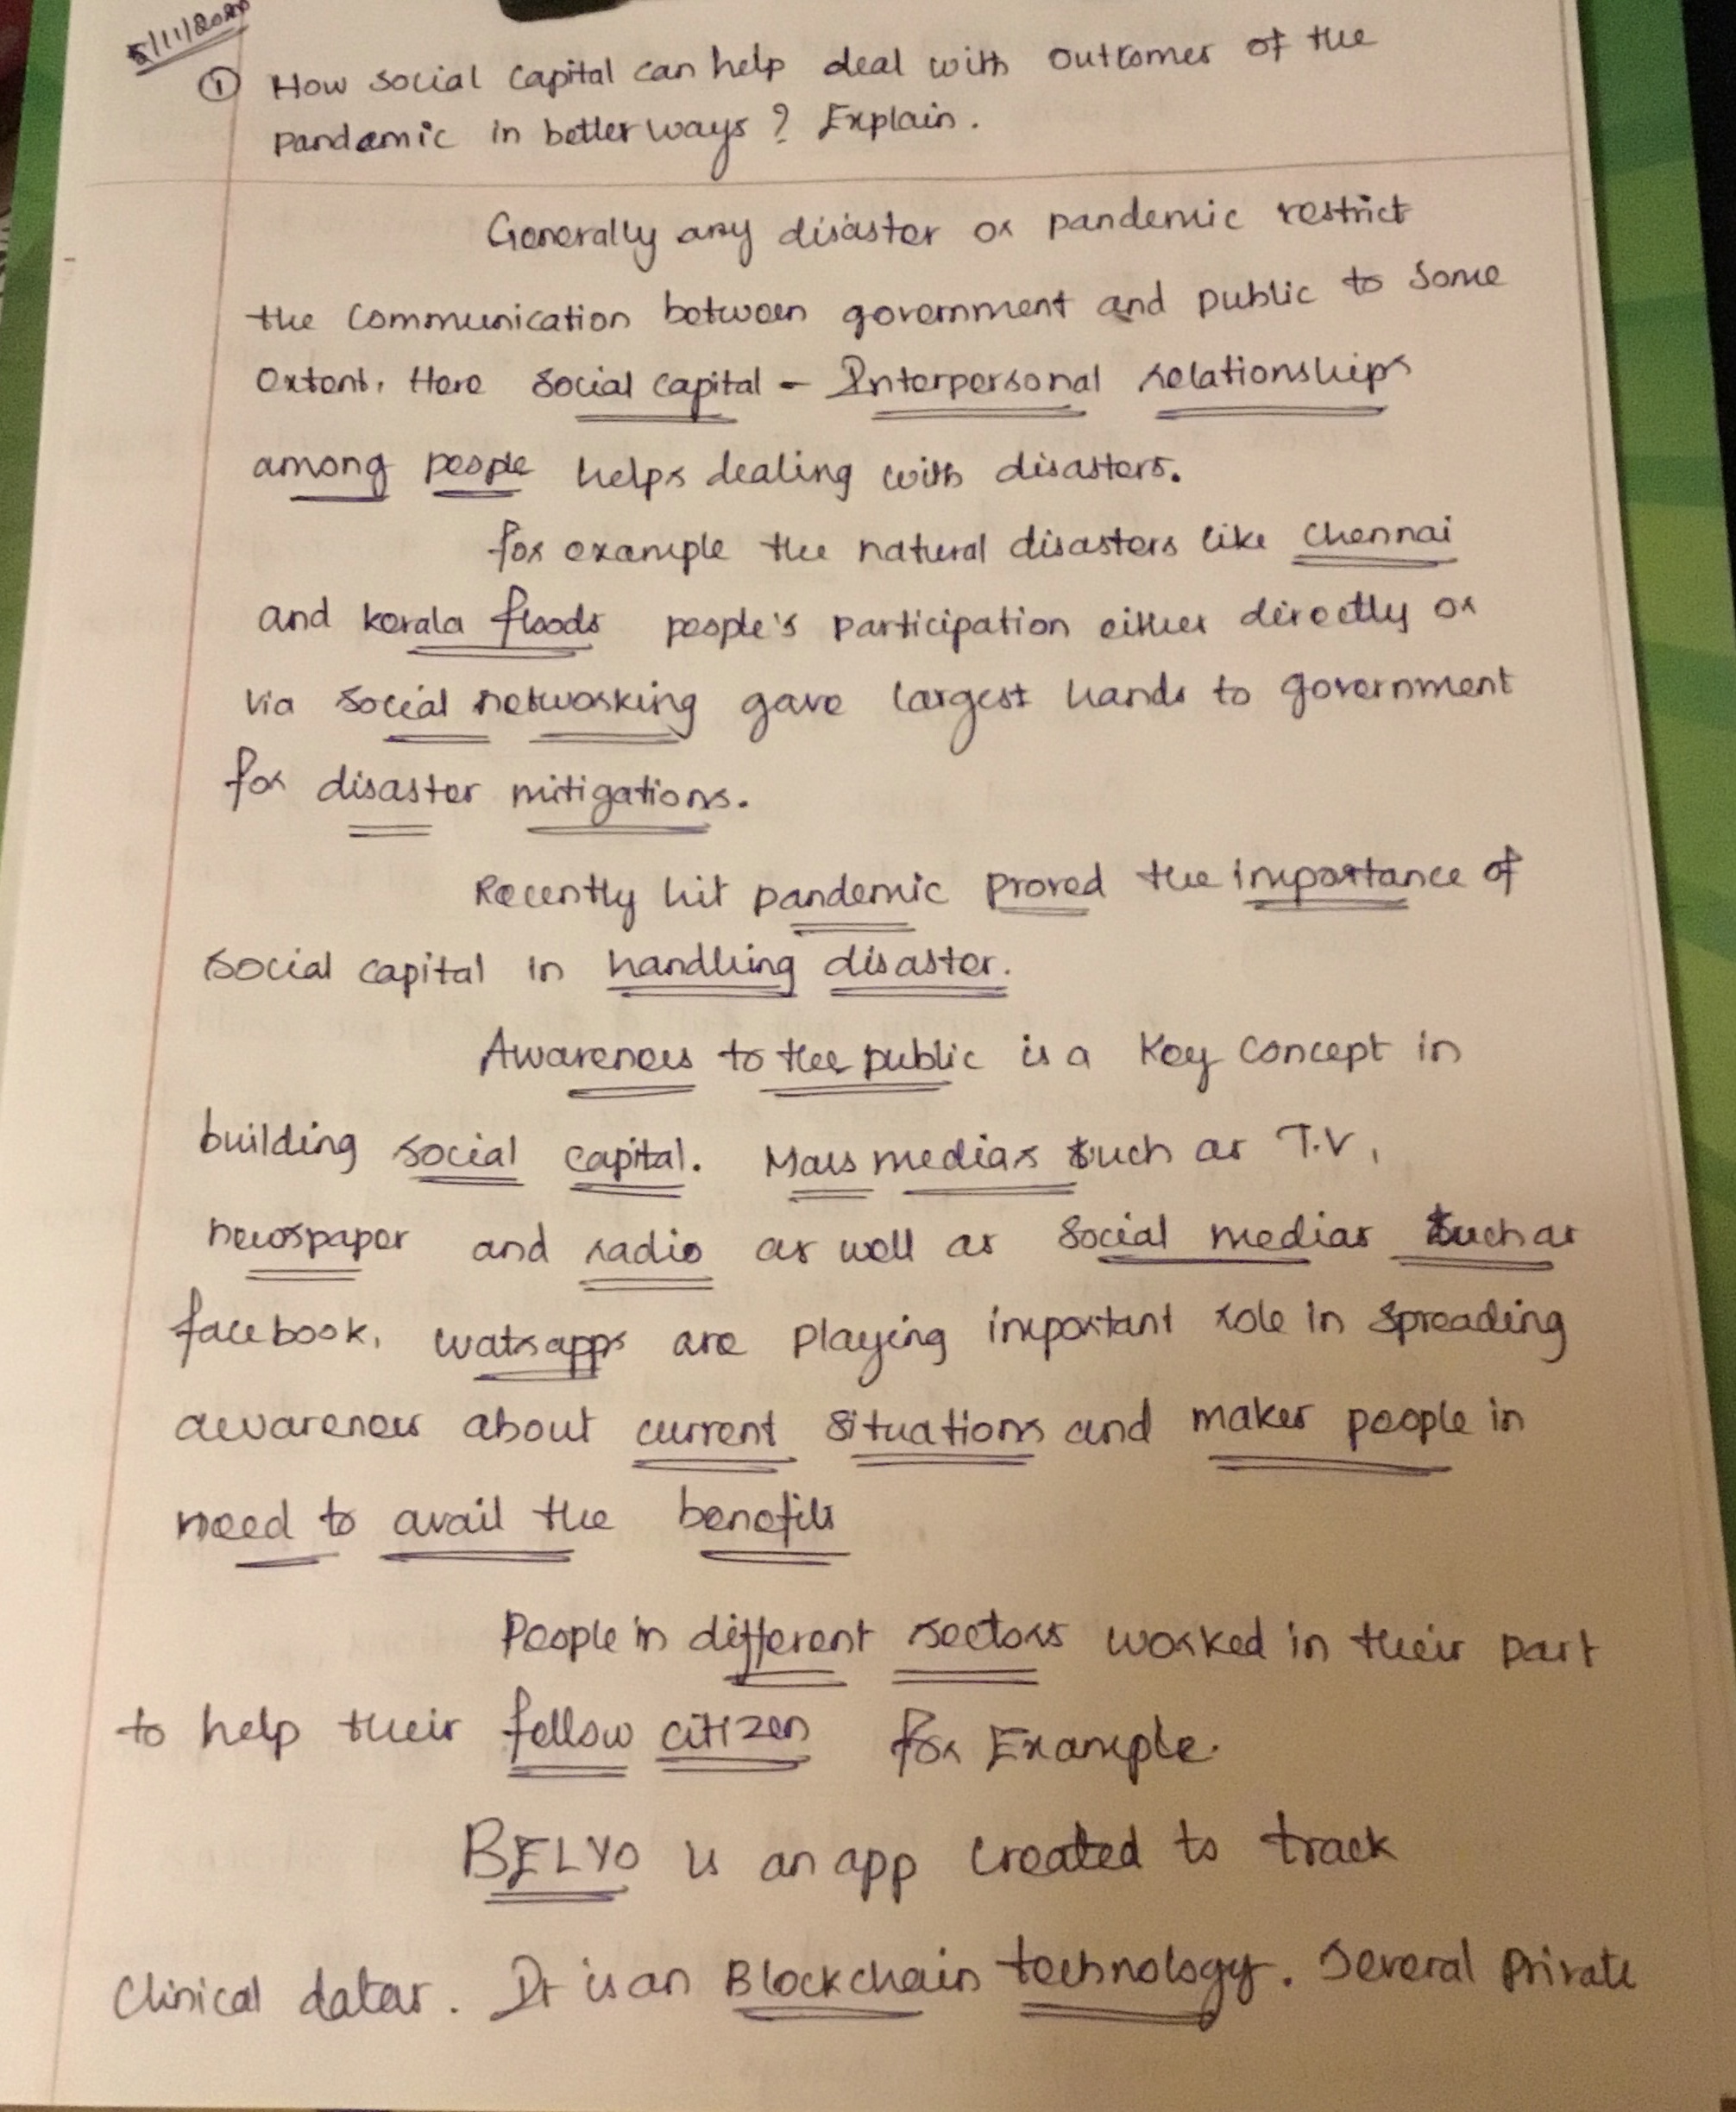 5/11/2020
① How social capital can help deal with outcomes of the
pandemic in better ways? Explain.
Generally any disaster or pandemic restrict
the communication between government and public to some
extent. Here social capital - Interpersonal relationships
among people helps dealing with disasters.
for example the natural disasters like Chennai
and kerala floods people's participation either directly or
via social networking gave largest hands to government
for disaster mitigations.
Recently hit pandemic proved the importance of
social capital in handling disaster.
Awareness to the public is a key concept in
building social capital. Mass medias such as T.V,
newspaper and radio as well as social medias such as
facebook, watsapps are playing important role in spreading
awareness about current situations and makes people in
need to avail the benefits
People in different sectors worked in their part
to help their fellow citizen for Example.
BELYO is an app created to track
Clinical datas. It is an Blockchain technology. Several private